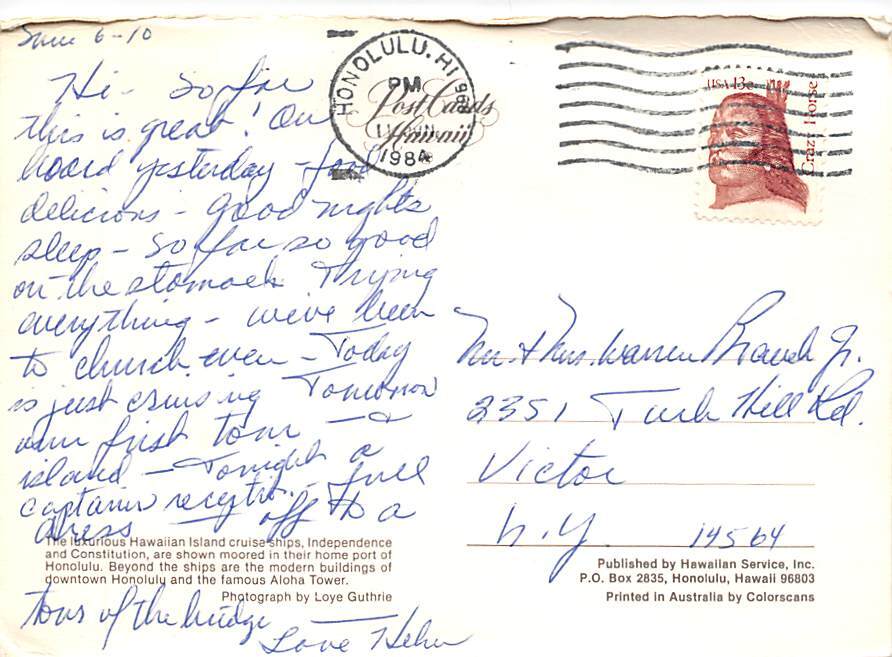 June 6-10
Hi - So far
this is great! On
board yesterday - food
delicious - good nights
sleep - So far so good
on the stomach Trying
everything - we've been
to church even - Today
is just cruising Tomorrow
our first tour - &
island - Tonight a
captains reception - full
dress - off to a
tour of the bridge
Love Helen
HONOLULU, HI 968
PM
11 JUN
1984
Post Cards
Hawaii
USA 13c
Crazy Horse
Mr & Mrs. Warren Brand Jr.
2351 Turk Hill Rd.
Victor
N.Y. 14564
The luxurious Hawaiian Island cruise ships, Independence
and Constitution, are shown moored in their home port of
Honolulu. Beyond the ships are the modern buildings of
downtown Honolulu and the famous Aloha Tower.
Photograph by Loye Guthrie
Published by Hawaiian Service, Inc.
P.O. Box 2835, Honolulu, Hawaii 96803
Printed in Australia by Colorscans